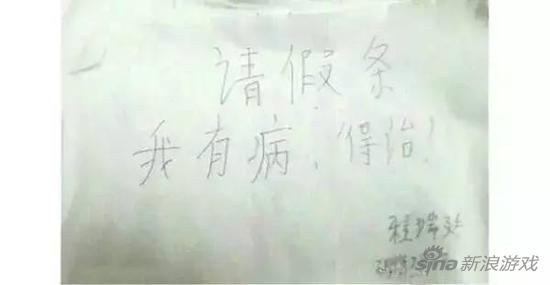 请假条
我有病，得治！
sina新浪游戏